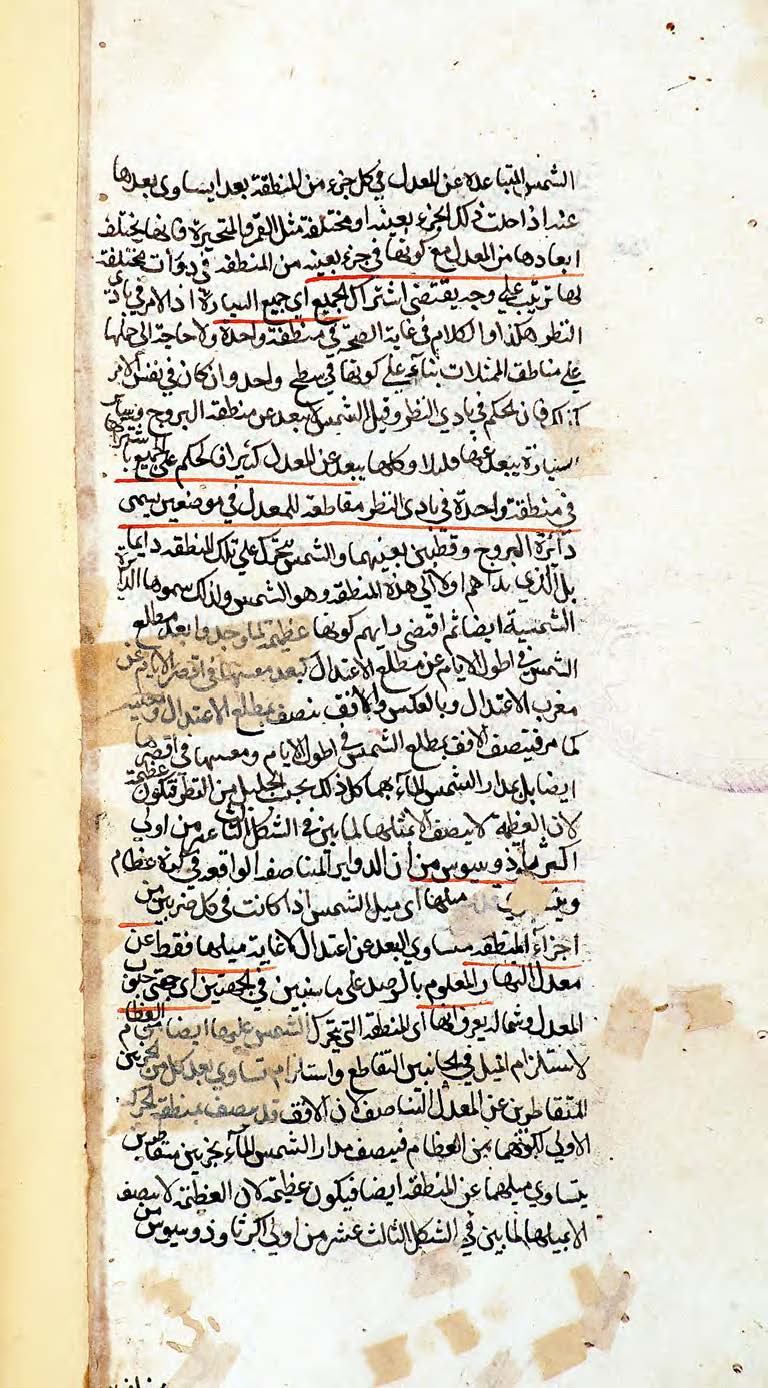 الشمس المتباعدة عن المعدل في كل جزء من المنطقة بعدا يساوي بعدها
عنه اذا حلت ذلك الجزء بعينه او مختلفة مثل القمر والمتحيرة فانها يختلف
ابعادها من المعدل مع كونها في جزء بعينه من المنطقه في دورات مختلفة
لها ترتيب علي وجه يقتضي اشتراك الجميع اي جميع السيارة اذ الامر في بادي
النظر هكذا او الكلام في غاية الصحة في منطقة واحدة ولا حاجة الى حملها
علي مناطق الممثلات بناء علي كونها في سطح واحد وان كان في نفس الامر
كذلك فان الحكم في بادي النظر وقيل الشمس لا يبعد عن منطقة البروج وسائر
السيارة يبعد عنها قليلا وكلها يبعد عن المعدل كثيرا فالحكم على الجميع باشتراكها
في منطقة واحدة في بادي النظر مقاطعة للمعدل في موضعين يسمى
دائرة البروج وقطبين بعينهما والشمس يتحرك علي تلك المنطقه دايما
بل الذي بداهم اولا الي هذه المنطقه وهو الشمس ولذلك سموها الدائرة
الشمسية ايضا ثم اقتضى رايهم كونها عظيمة لما وجدوا بعد مطلع
الشمس في اطول الايام عن مطلع الاعتدال كبعد مغيبها في اقصر الايام عن
مغرب الاعتدال وبالعكس والافق ينصف بمطلع الاعتدال ومغيبه
كما مر فينتصف الافق بمطلع الشمس في اطول الايام ومغيبها في اقصرها
ايضا بل بمدار الشمس المار بهما كل ذلك بحسب الجليل من النظر فتكون عظيمة
لان العظيمة لا ينصف الا بمثلها لما بين في الشكل الثاني عشر من اولي
اكر ثاوذوسيوس من ان الدواير المتناصفه الواقعه في كرة عظام
ميلها اي ميل الشمس اذا كانت في كل ضربين من
اجزاء المنطقه متساوي البعد عن اعتدال لا غاية ميلها فقط عن
معدل النهار والمعلوم بالرصد على ما سنبين في الجهتين اي جهتي جنوب
المعدل وشماله يعرف انها اي المنطقة التي يتحرك الشمس عليها ايضا من العظام
لاستلزام الميل في الجانبين التقاطع واستلزام تساوي بعد كل من الجزئين
المتقاطرين عن المعدل التناصف لان الافق قد ينصف بمنطقة الحركة
الاولي لكونهما من العظام فينصف مدار الشمس المار بجزئين متقاطرين
يتساوي ميلهما عن المنطقه ايضا فيكون عظيمة لان العظيمة لا ينصف
الا بمثلها لما بين في الشكل الثالث عشر من اولي اكر ثاوذوسيوس من